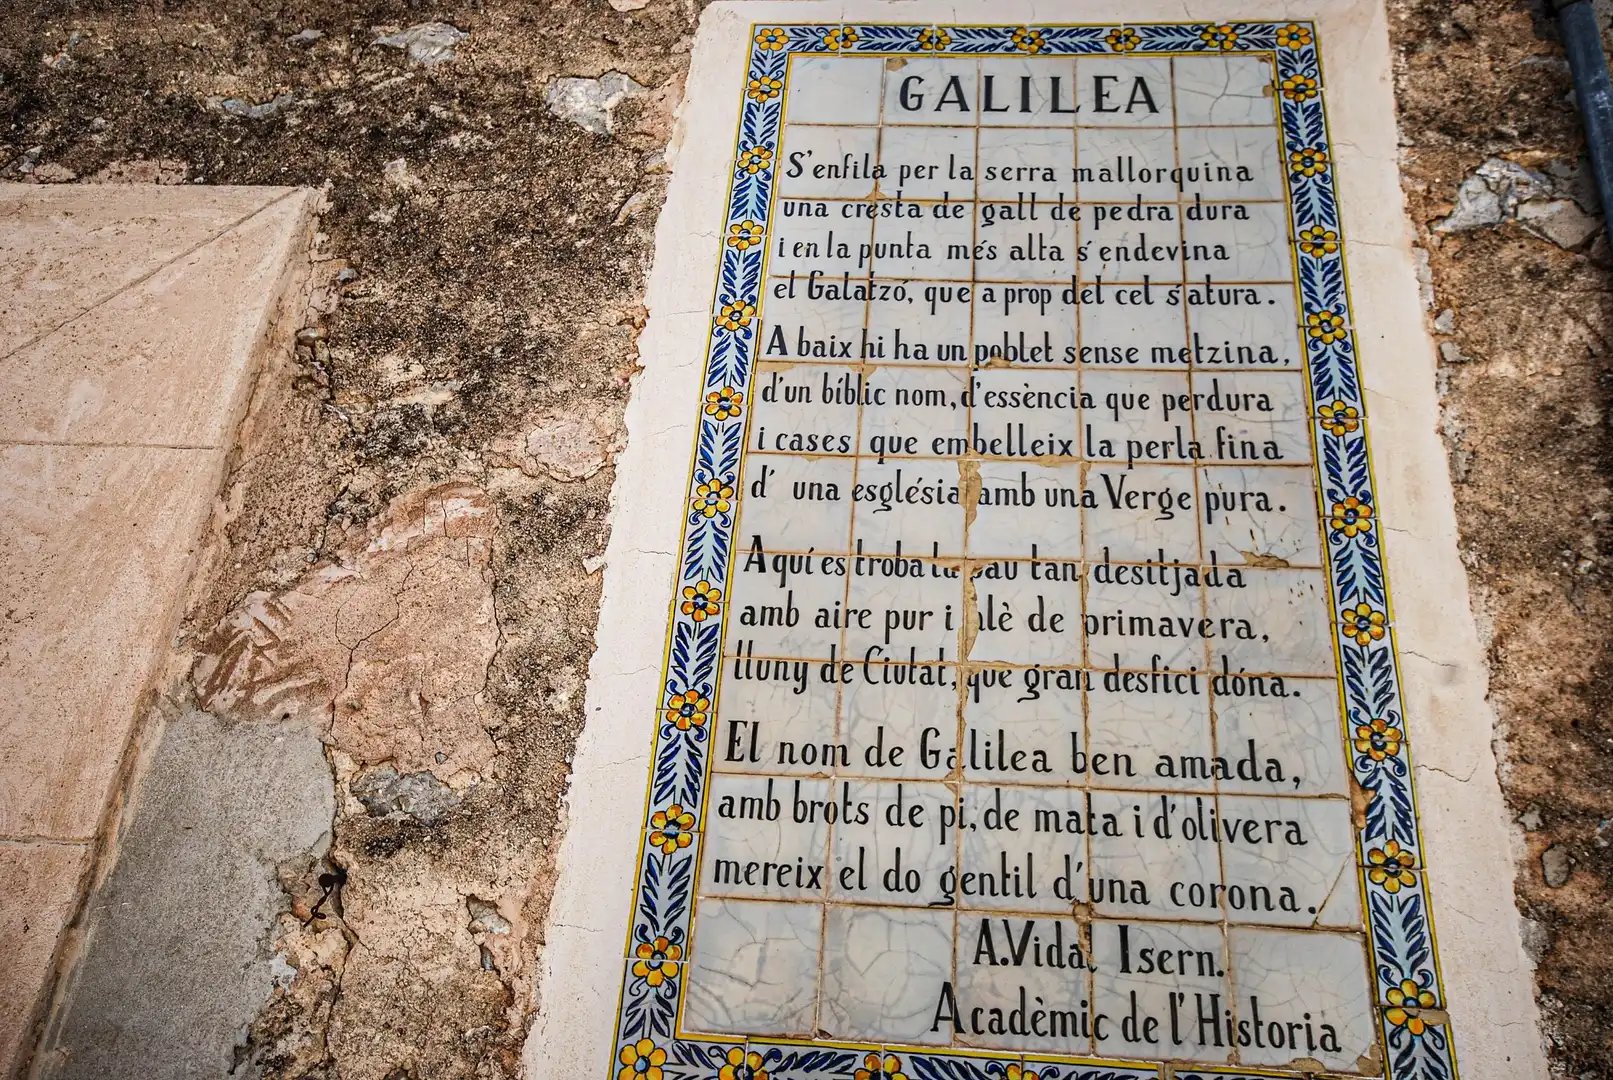 GALILEA
S'enfila per la serra mallorquina
una cresta de gall de pedra dura
i en la punta més alta s'endevina
el Galatzó, que a prop del cel s'atura.
A baix hi ha un poblet sense metzina,
d'un bíblic nom, d'essència que perdura
i cases que embelleix la perla fina
d' una església amb una Verge pura.
Aquí es troba la pau tan desitjada
amb aire pur i alè de primavera,
lluny de Ciutat, que gran desfici dóna.
El nom de Galilea ben amada,
amb brots de pi, de mata i d'olivera
mereix el do gentil d'una corona.
A. Vidal Isern.
Acadèmic de l'Historia